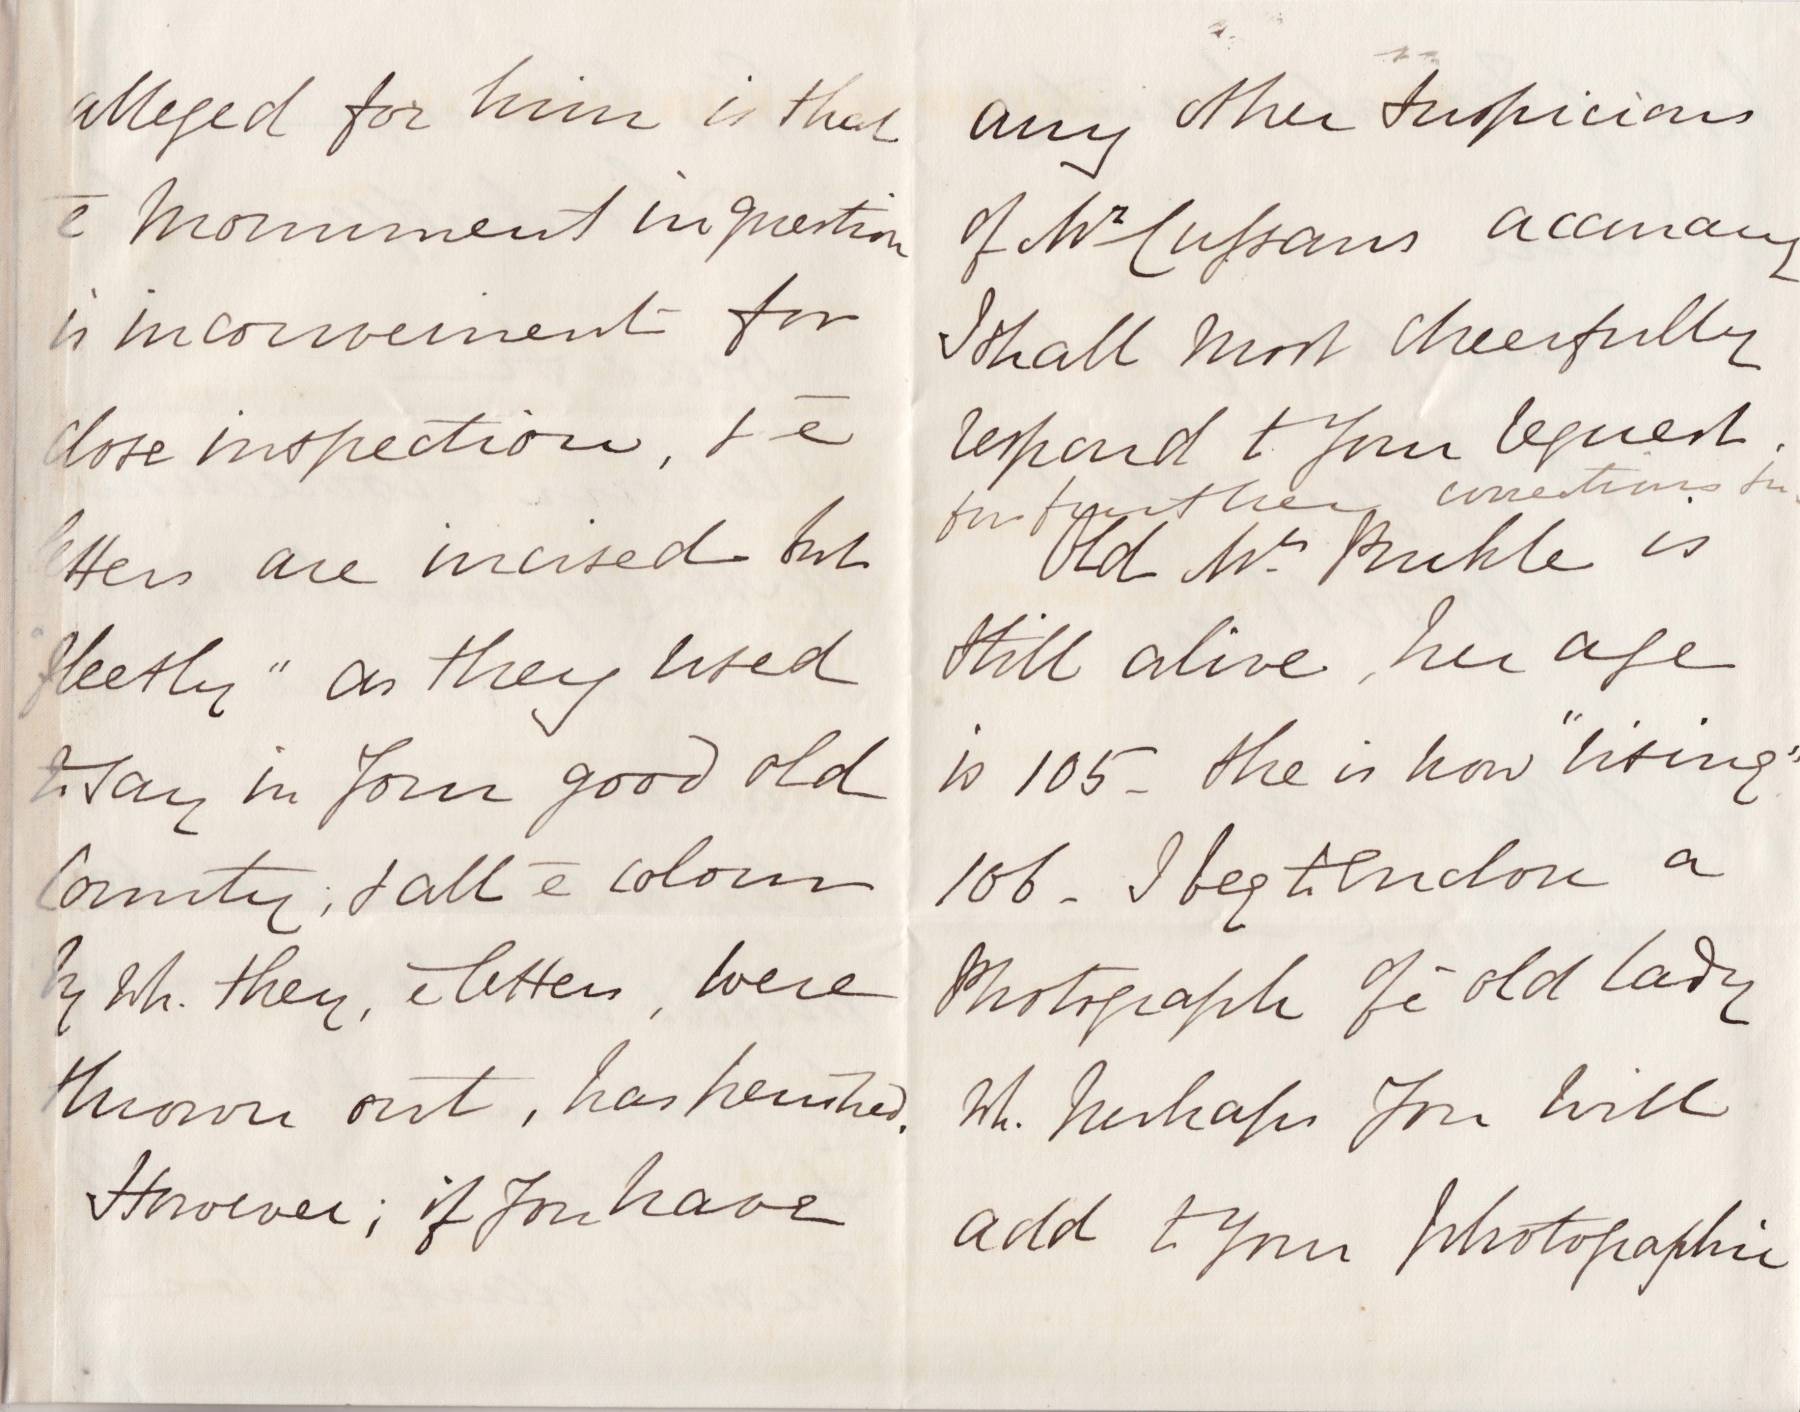 alleged for him is that
ē Monument in question
is inconvenient for
close inspection, & ē
letters are incised but
fleetly" as they used
to say in your good old
County; & all ē colour
by wh. they, ē letters, were
thrown out, has perished.
However; if you have
any other suspicions
of Mr Cussans accuracy
I shall most cheerfully
respond to your request.
for further corrections
Old Mrs Puckle is
still alive, her age
is 105 - She is now "rising"
106 - I beg to enclose a
Photograph of ē old lady
wh. perhaps you will
add to your photographic